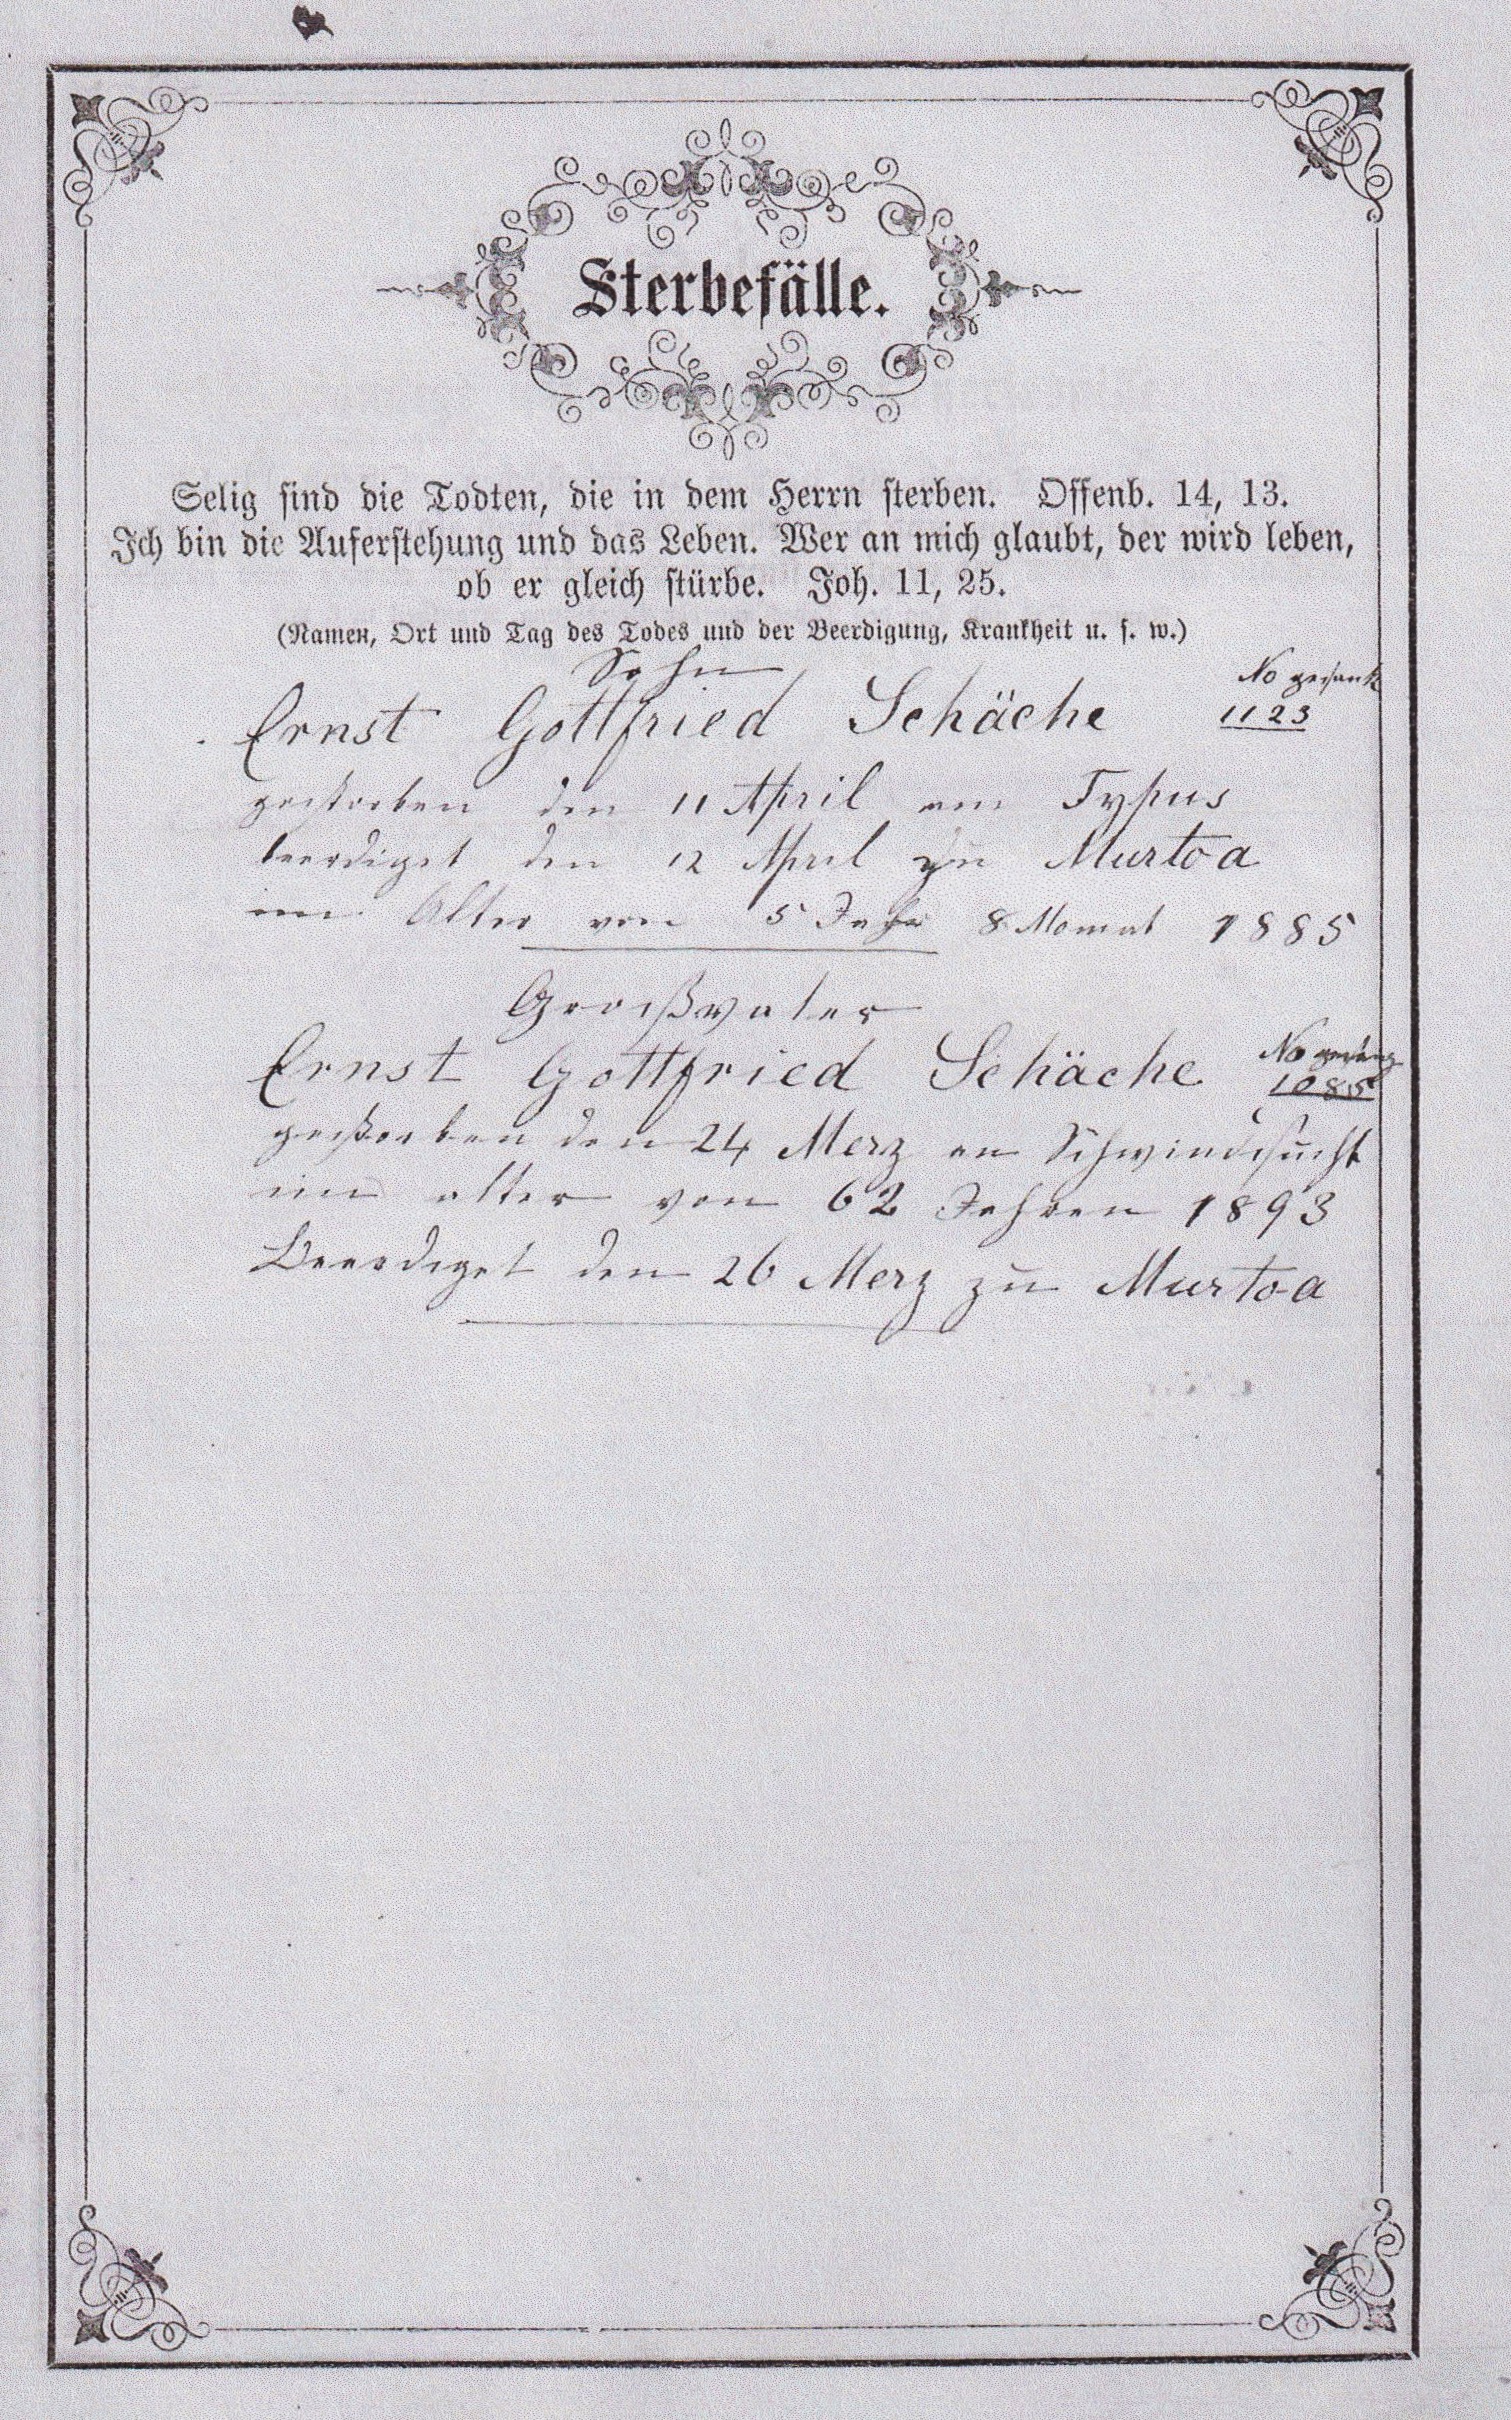 Sterbefälle.
Selig sind die Todten, die in dem Herrn sterben. Offenb. 14, 13.
Ich bin die Auferstehung und das Leben. Wer an mich glaubt, der wird leben,
ob er gleich stürbe. Joh. 11, 25.
(Namen, Ort und Tag des Todes und der Beerdigung, Krankheit u. s. w.)
Sohn
Ernst Gottfried Schäche No
1123
gestorben den 11 April am Typus
beerdiget den 12 April zu Murtoa
im Alter von 5 Jahr 8 Monat 1885
Großvater
Ernst Gottfried Schäche No
1085
gestorben den 24 Merz an Schwindsucht
im alter von 62 Jahren 1893
Beerdiget den 26 Merz zu Murtoa